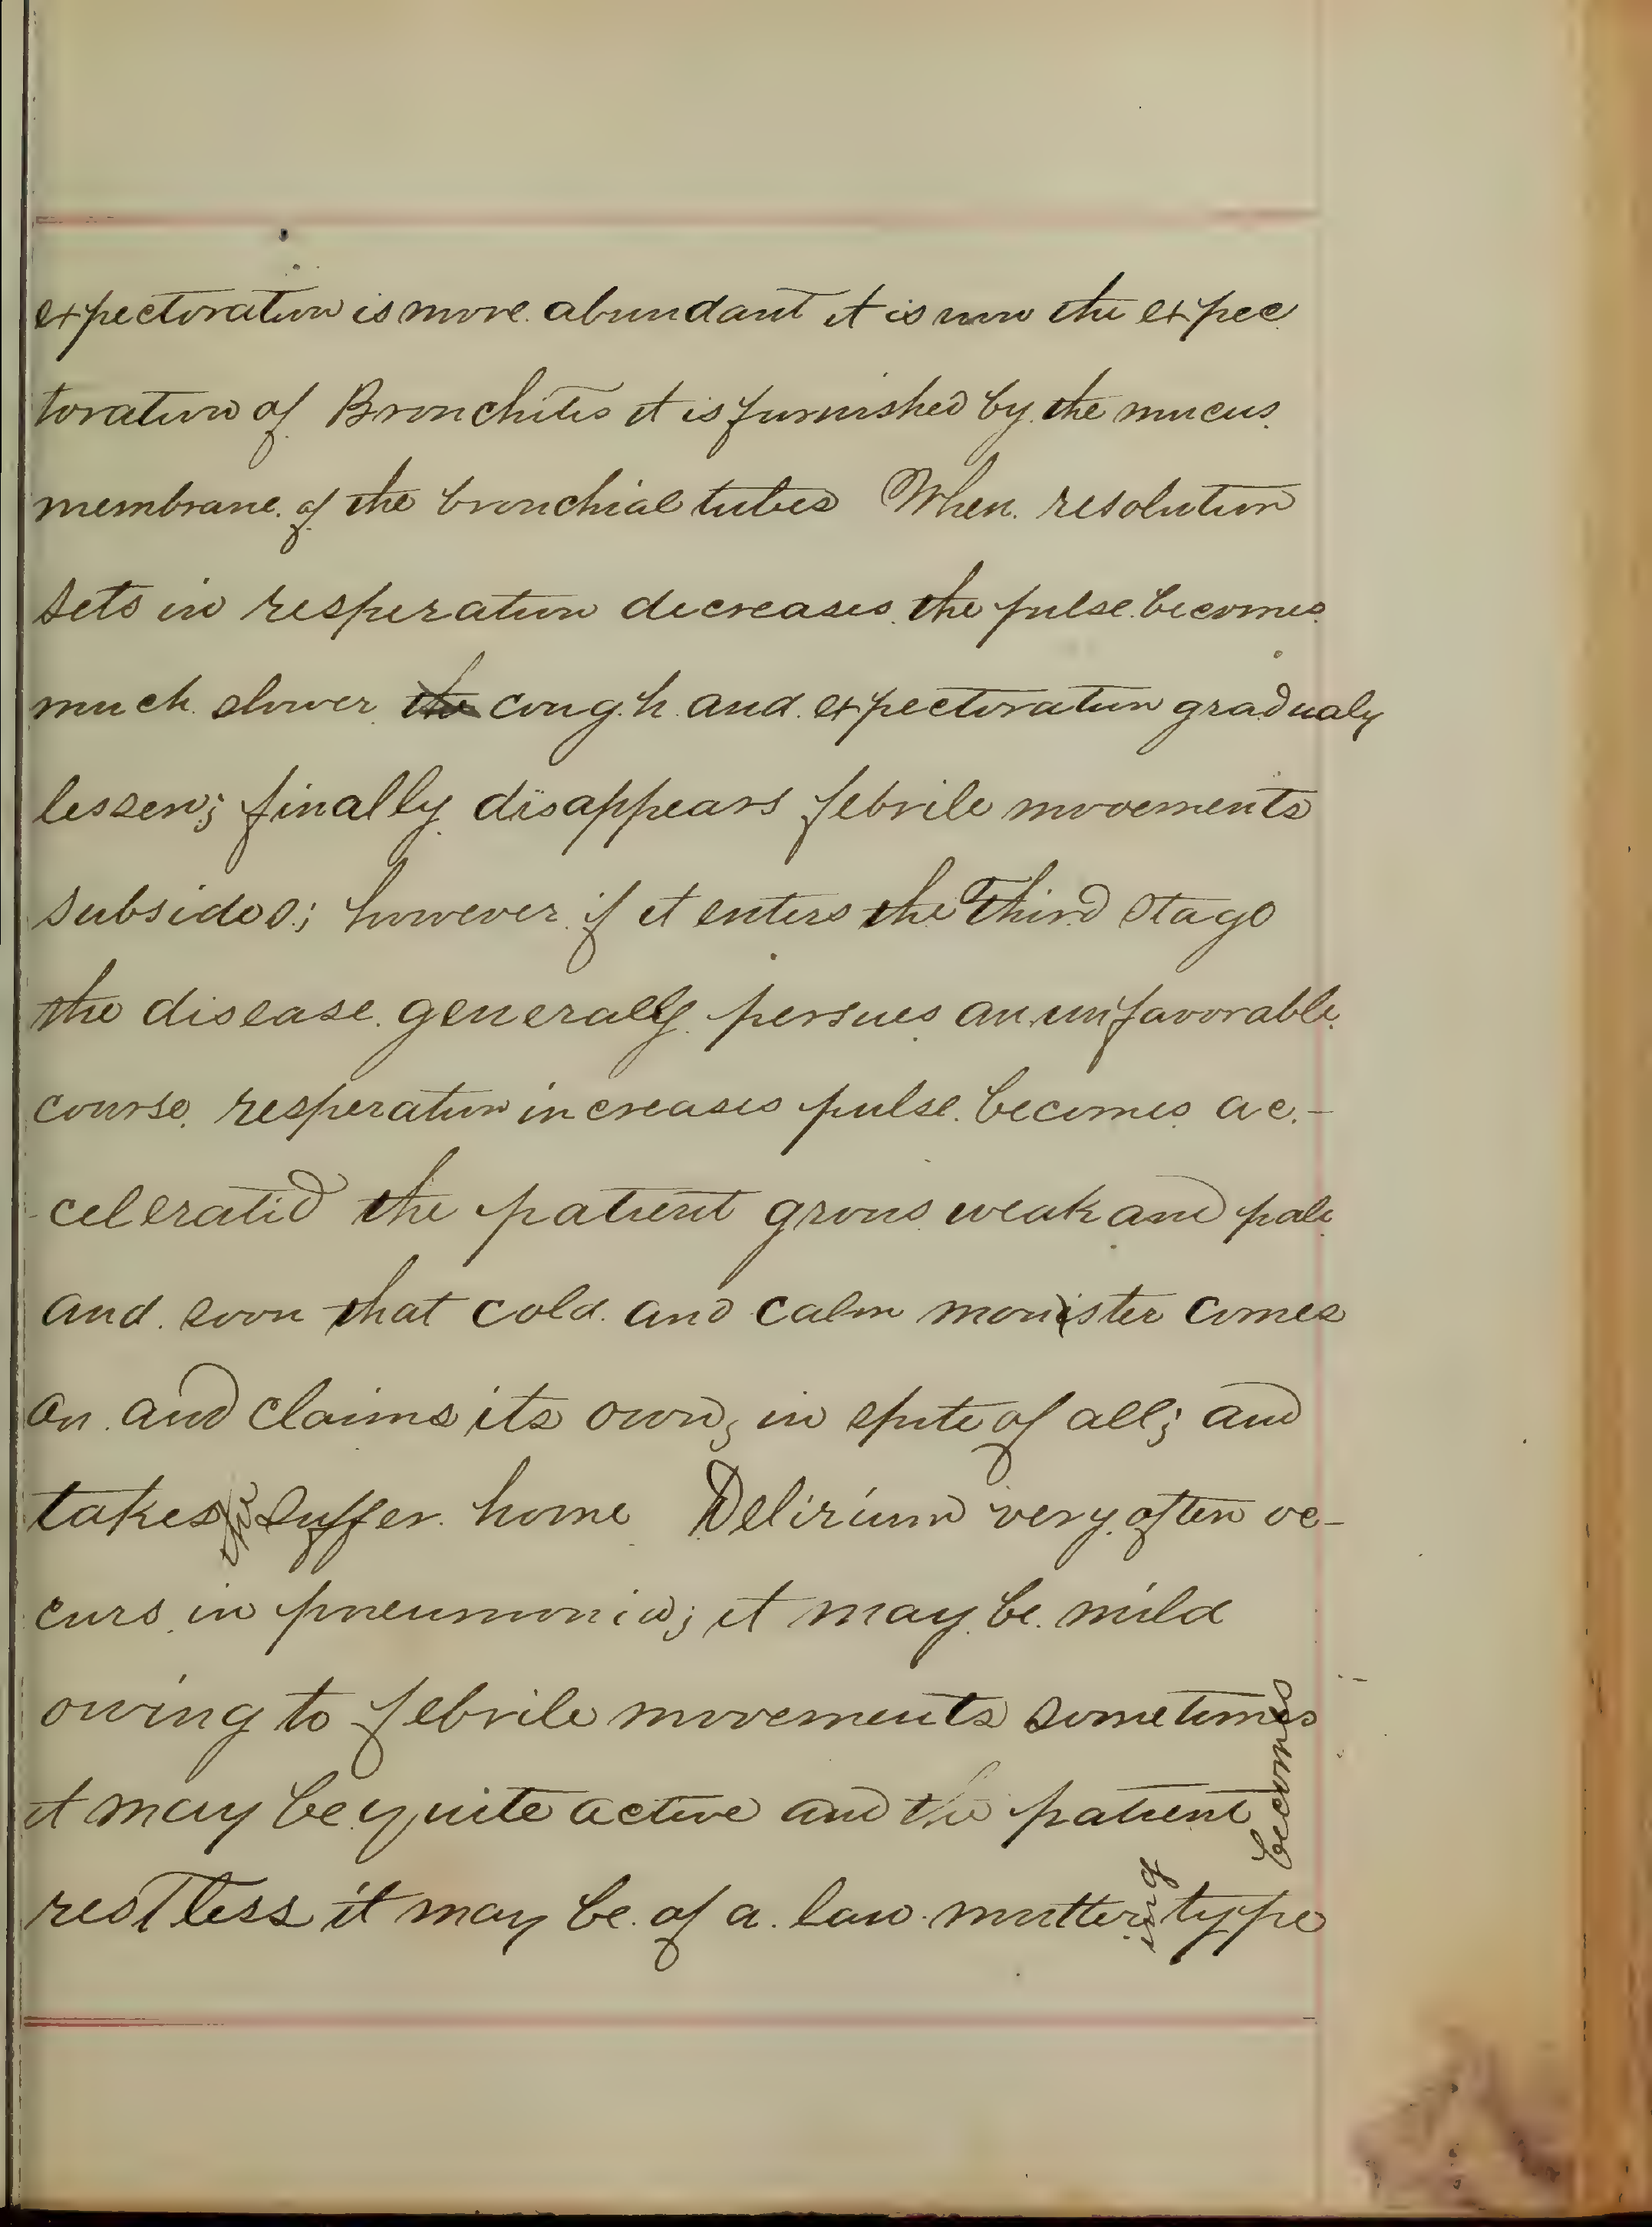 expectoration is more abundant it is now the expec
toration of Bronchitis it is furnished by the mucus
membrane of the bronchial tubes When resolution
sets in resperation decreases the pulse becomes
much slower the cough and expectoration gradualy
lessen; finally disappears febrile movements
subsides; however if it enters the Third stage
the disease generally persues an unfavorable
course resperation increases pulse becomes ac-
-celerated the patient grows weak and pale
and soon that cold and calm monister comes
on and claims its own, in spite of all; and
takes the suffer home Delirium very often oc-
curs in pneumonia; it may be mild
owing to febrile movements sometimes
it may be quite active and the patient becomes
restless it may be of a low muttering type